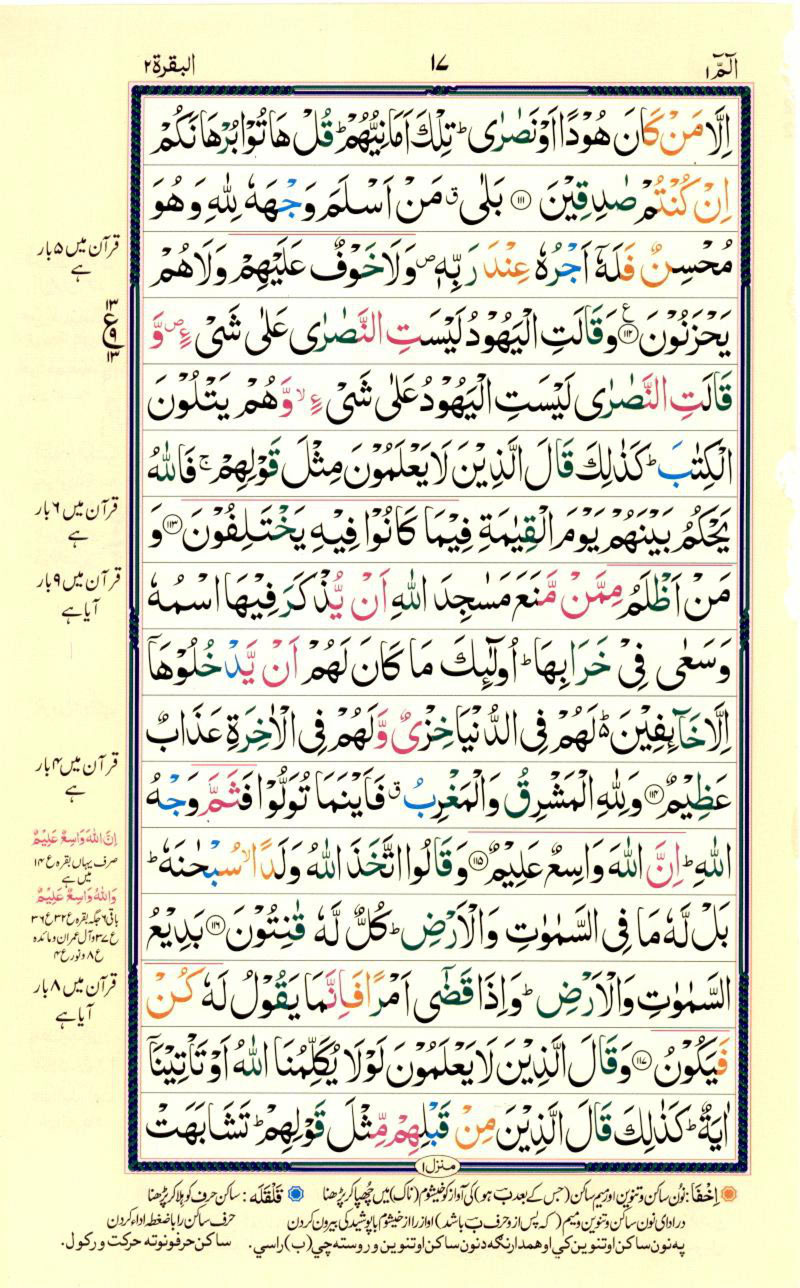 الٓمّٓ ١
١٧
البقرة ٢
اِلَّا مَنْ كَانَ هُوْدًا اَوْ نَصٰرٰى ؕ تِلْكَ اَمَانِيُّهُمْ ؕ قُلْ هَاتُوْا بُرْهَانَكُمْ
اِنْ كُنْتُمْ صٰدِقِيْنَ ۝۱۱۱ بَلٰى ۗ مَنْ اَسْلَمَ وَجْهَهٗ لِلّٰهِ وَهُوَ
مُحْسِنٌ فَلَهٗۤ اَجْرُهٗ عِنْدَ رَبِّهٖ ۪ وَلَا خَوْفٌ عَلَيْهِمْ وَلَا هُمْ
يَحْزَنُوْنَ ۝۱۱۲ وَقَالَتِ الْيَهُوْدُ لَيْسَتِ النَّصٰرٰى عَلٰى شَىْءٍ ۪ وَّ
قَالَتِ النَّصٰرٰى لَيْسَتِ الْيَهُوْدُ عَلٰى شَىْءٍ ۙ وَّهُمْ يَتْلُوْنَ
الْكِتٰبَ ؕ كَذٰلِكَ قَالَ الَّذِيْنَ لَا يَعْلَمُوْنَ مِثْلَ قَوْلِهِمْ ۚ فَاللّٰهُ
يَحْكُمُ بَيْنَهُمْ يَوْمَ الْقِيٰمَةِ فِيْمَا كَانُوْا فِيْهِ يَخْتَلِفُوْنَ ۝۱۱۳ وَ
مَنْ اَظْلَمُ مِمَّنْ مَّنَعَ مَسٰجِدَ اللّٰهِ اَنْ يُّذْكَرَ فِيْهَا اسْمُهٗ
وَسَعٰى فِىْ خَرَابِهَا ؕ اُولٰٓئِكَ مَا كَانَ لَهُمْ اَنْ يَّدْخُلُوْهَاۤ
اِلَّا خَآئِفِيْنَ ؕ لَهُمْ فِى الدُّنْيَا خِزْىٌ وَّلَهُمْ فِى الْاٰخِرَةِ عَذَابٌ
عَظِيْمٌ ۝۱۱۴ وَلِلّٰهِ الْمَشْرِقُ وَالْمَغْرِبُ ۗ فَاَيْنَمَا تُوَلُّوْا فَثَمَّ وَجْهُ
اللّٰهِ ؕ اِنَّ اللّٰهَ وَاسِعٌ عَلِيْمٌ ۝۱۱۵ وَقَالُوا اتَّخَذَ اللّٰهُ وَلَدًا ۙ سُبْحٰنَهٗ ؕ
بَلْ لَّهٗ مَا فِى السَّمٰوٰتِ وَالْاَرْضِ ؕ كُلٌّ لَّهٗ قٰنِتُوْنَ ۝۱۱۶ بَدِيْعُ
السَّمٰوٰتِ وَالْاَرْضِ ؕ وَاِذَا قَضٰۤى اَمْرًا فَاِنَّمَا يَقُوْلُ لَهٗ كُنْ
فَيَكُوْنُ ۝۱۱۷ وَقَالَ الَّذِيْنَ لَا يَعْلَمُوْنَ لَوْلَا يُكَلِّمُنَا اللّٰهُ اَوْ تَاْتِيْنَاۤ
اٰيَةٌ ؕ كَذٰلِكَ قَالَ الَّذِيْنَ مِنْ قَبْلِهِمْ مِّثْلَ قَوْلِهِمْ ؕ تَشَابَهَتْ
قرآن میں ۵ بار
ہے
۱۳
ع
۹
۱۳
قرآن میں ۶ بار
ہے
قرآن میں ۹ بار
آیا ہے
قرآن میں ۴ بار
ہے
اِنَّ اللّٰهَ وَاسِعٌ عَلِيْمٌ
صرف یہاں بقرہ ع ۱۴
میں ہے
وَاللّٰهُ وَاسِعٌ عَلِيْمٌ
باقی ۶ جگہ بقرہ ع ۳۲ ع ۳۶
ع ۳۷ و آل عمران و مائدہ
ع ۸ و نور ع ۴
قرآن میں ۸ بار
آیا ہے
منزل ۱
اِخْفَا: نُون ساکن و تنوین اور میم ساکن (جس کے بعد بَ ہو) کی آواز کو خیشوم (ناک) میں چُھپا کر پڑھنا
قَلْقَلَه: ساکن حرف کو ہلا کر پڑھنا
در ادای نون ساکن و تنوین و میم (که پس از و حرف بَ باشد) اواز را از خیشوم با پوشیدگی بیرون کردن
حرف ساکن را با ضغطه اداء کردن
په نون ساکن او تنوین کي او همدارنگه د نون ساکن او تنوین وروسته چي (ب) راسي.
ساکن حرفونو ته حرکت ورکول.